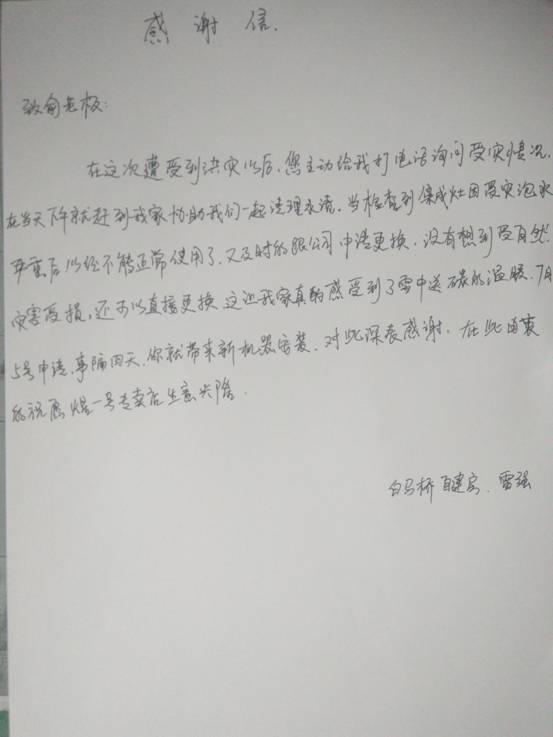 感谢信.
致旬老板:
在这次遭受到洪灾以后,您主动给我打电话询问受灾情况,
在当天下午就赶到我家协助我们一起清理水渍.当检查到集成灶因受灾泡水
严重后以经不能正常使用了,又及时的跟公司申请更换,没有想到受自然
灾害受损,还可以直接更换.这让我家真的感受到了雪中送碳的温暖.7月
5号申请,事隔四天,你就带来新机器安装.对此深表感谢,在此由衷
的祝愿 煌一号专卖店生意兴隆.
白马桥自建房、雷强